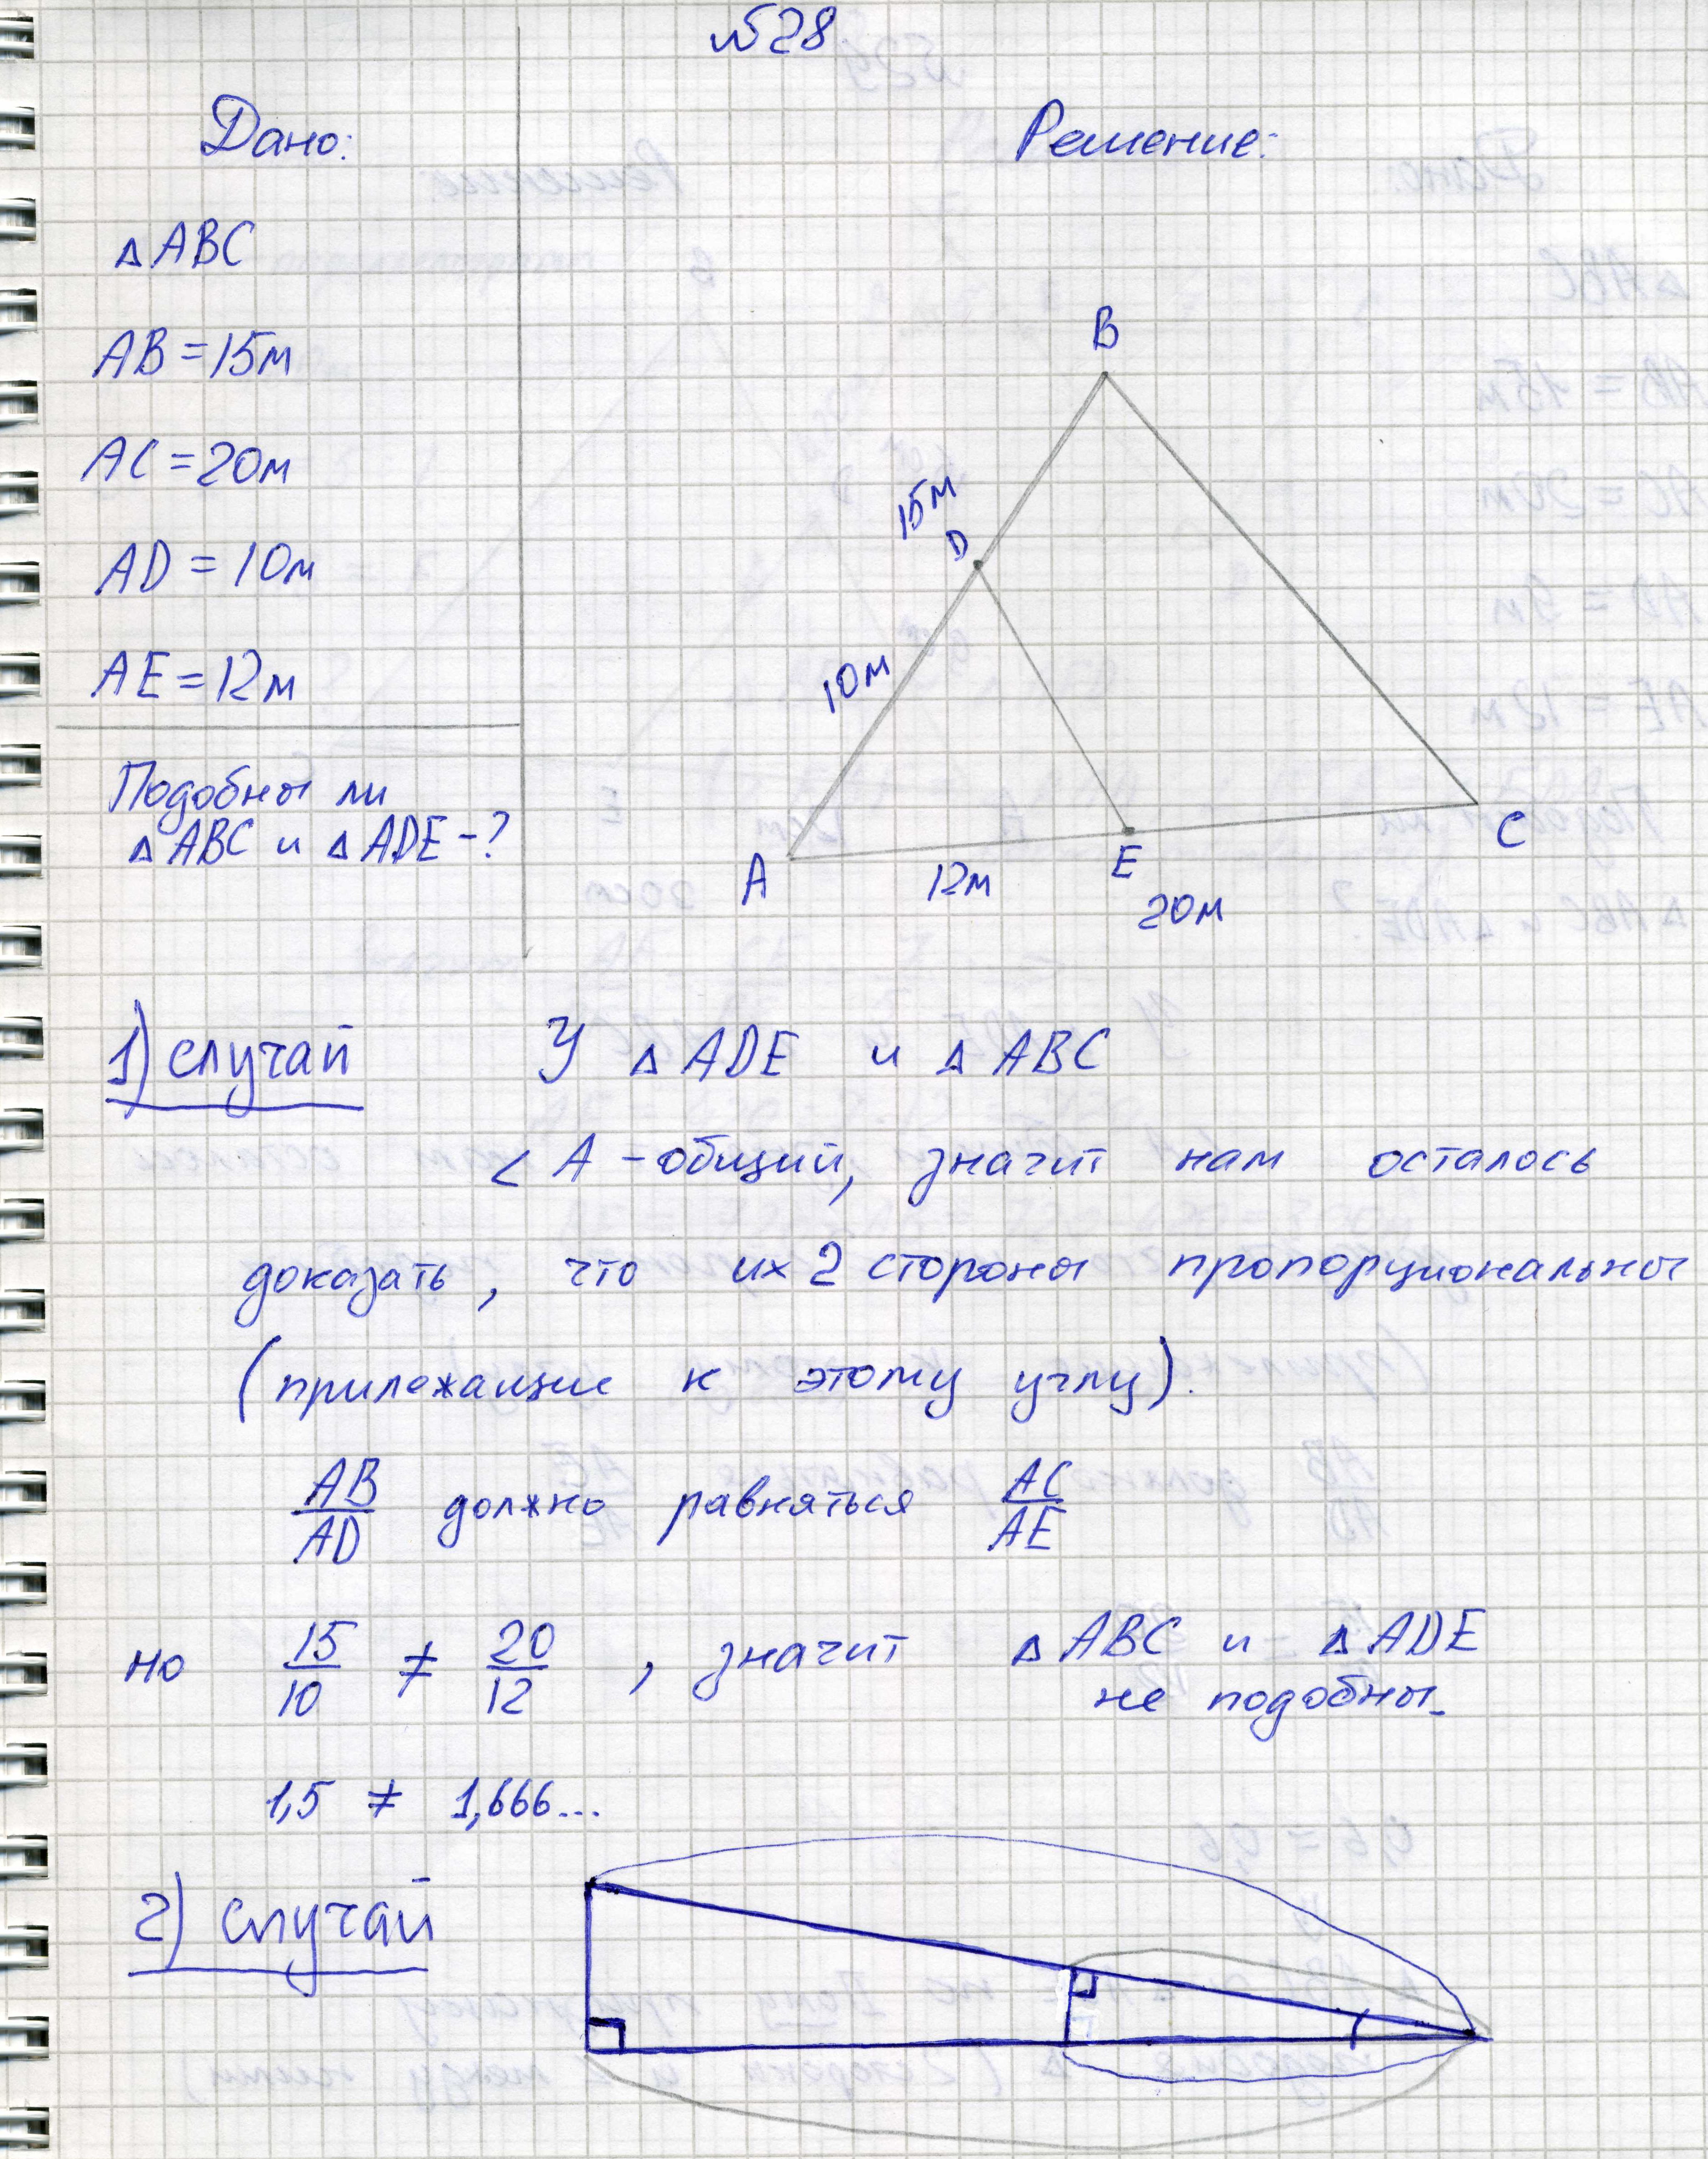 №28
Дано:
Решение:
△ABC
AB=15м
AC=20м
AD=10м
AE=12м
Подобны ли
△ABC и △ADE-?
B
15м
D
10м
A
12м
E
20м
C
1) случай У △ADE и △ABC
∠A-общий, значит нам осталось
доказать, что их 2 стороны пропорциональны
(прилежащие к этому углу).
AB/AD должно равняться AC/AE
но 15/10 ≠ 20/12, значит △ABC и △ADE
не подобны.
1,5 ≠ 1,666...
2) случай